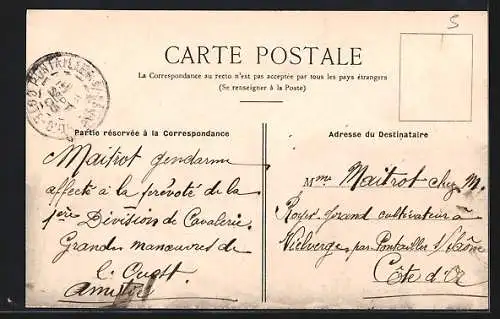 5
CARTE POSTALE
La Correspondance au recto n'est pas acceptée par tous les pays étrangers
(Se renseigner à la Poste)
Partie réservée à la Correspondance
Maitrot gendarme
affecté à la prévoté de la
1ère Division de Cavalerie.
Grandes manœuvres de
l'Ouest.
Amitiés
Adresse du Destinataire
Mme Maitrot chez M.
Royer grand cultivateur à
Vielverge, par Pontailler s/ Saône
Côte d'Or